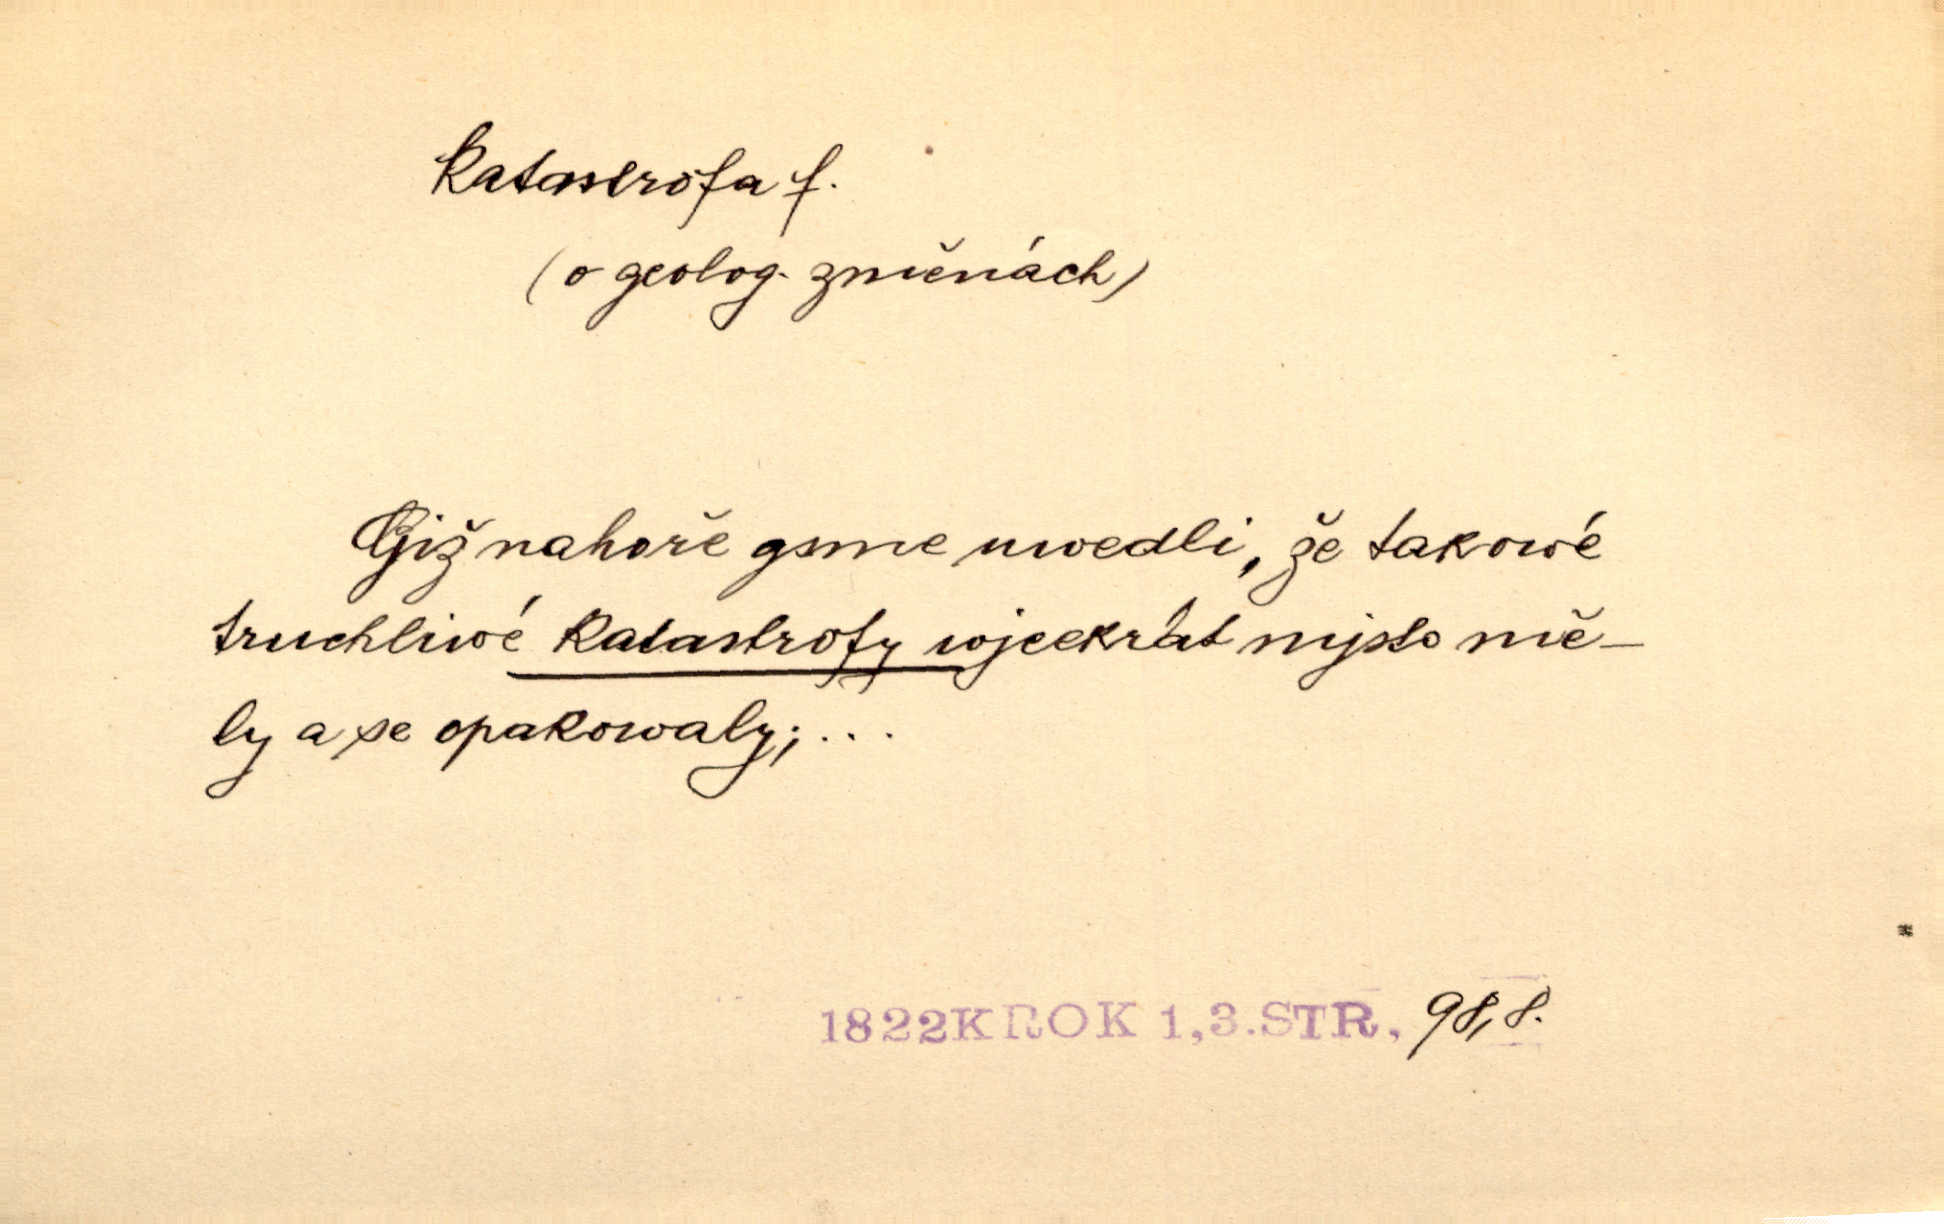 Katastrofa f.
(o geolog. změnách)
Giž nahoře gsme uwedli, že takowé
truchliwé katastrofy wjcekrát mjsto mě-
ly a se opakowaly; ...
1822 KROK 1,3. STR, 98,8.